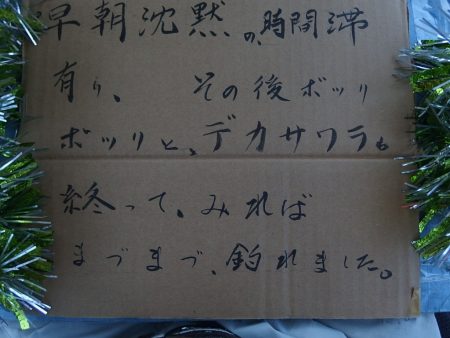 早朝沈黙の、時間滞
有り、 その後ボツリ
ボツリと、デカサワラも
終って、みれば
まづまづ、釣れました。